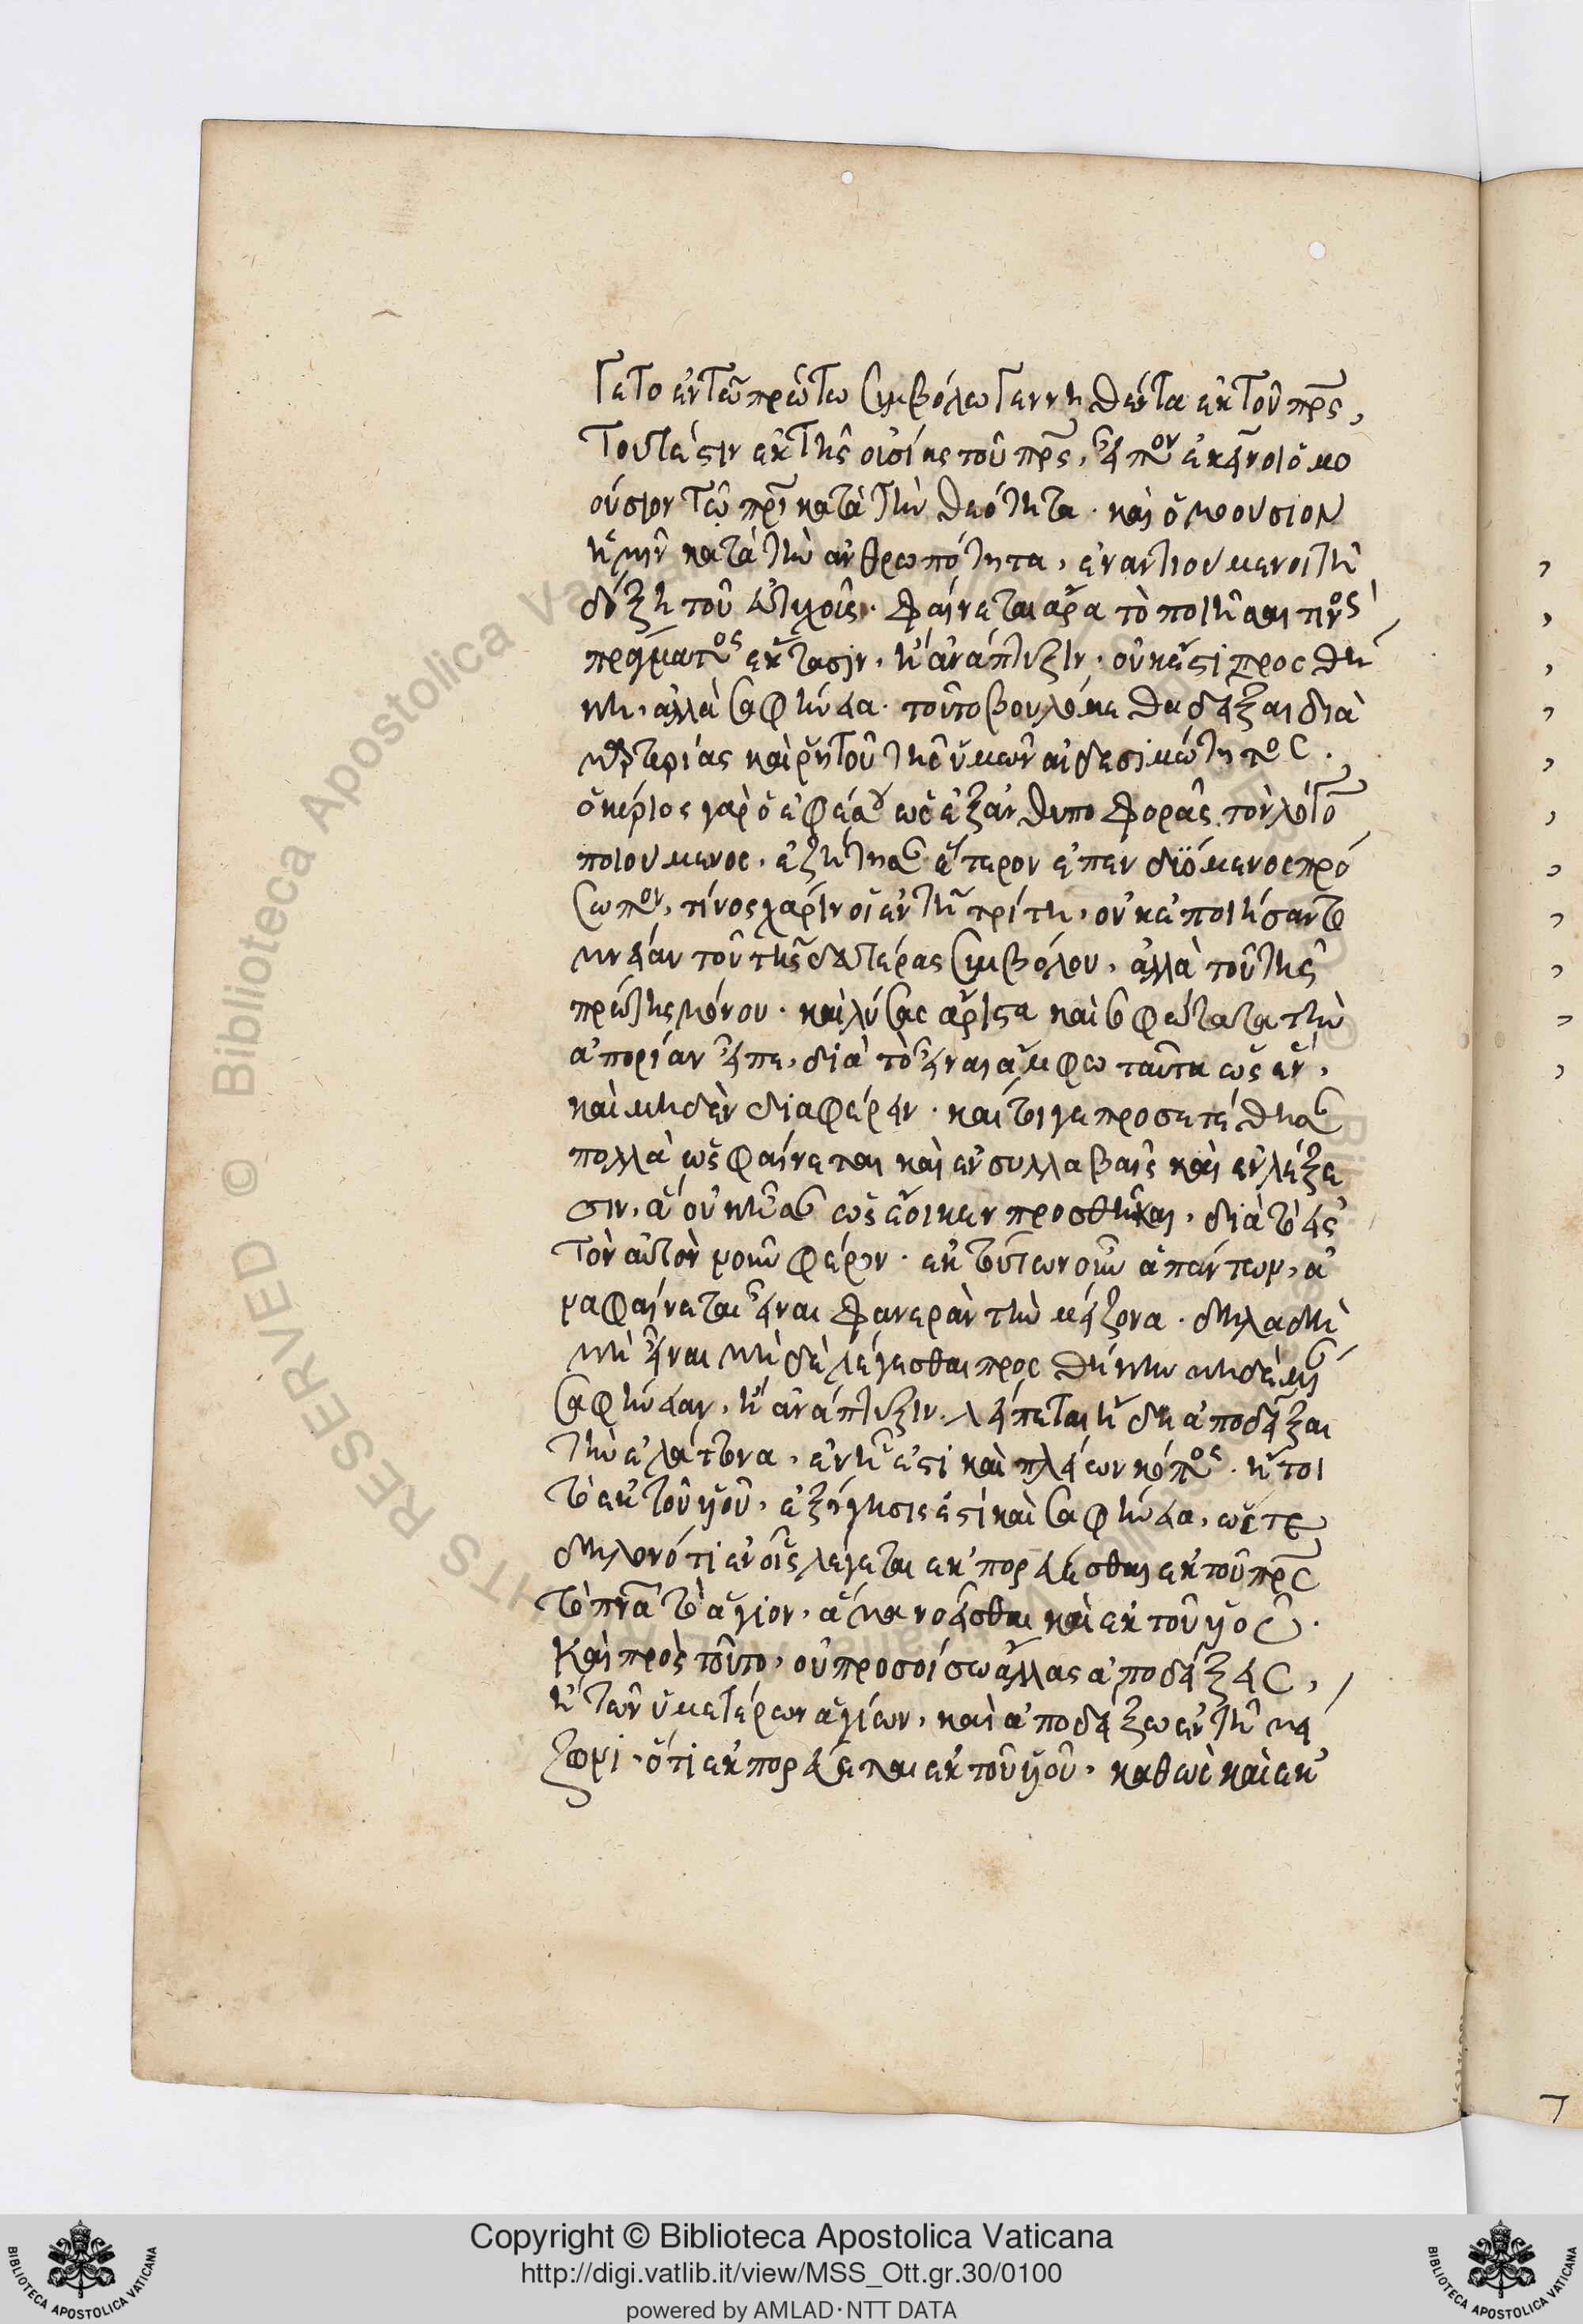 γε το ἐν τῶ πρώτω συμβόλω γεννηθέντα ἐκ τοῦ πρς,
τουτέστιν ἐκ τῆς οὐσίας τοῦ πρς, εἶπον ἐκεῖνοι ὁμο
ούσιον τῶ πρὶ κατὰ τὴν θεότητα · καὶ ὁμοουσιον
ἡμῖν κατὰ τὴν ἀνθρωπότητα, ἐναντιουμενοι τῆ
δόξη τοῦ εὐτυχοῦς · φαίνεται ἄρα τὸ ποιῆσαι τινὸς
πράγματος ἔκτασιν, ἢ ἀνάπτυξιν, οὐκ ἔστι προσθή
κη, ἀλλὰ σαφήνεια · τοῦτο βουλόμεθα δεῖξαι διὰ
μαρτυρίας καὶ ῥητοῦ τῆς ὑμῶν αἰδεσιμότητος .
ὁ κύριος γὰρ ὁ ἐφέσου ὡς ἐξ ἀνθυποφορᾶς τὸν λόγον
ποιουμενος, ἐζήτησεν ἕτερον ἐπενδυόμενος πρό
σωπον, τίνος χάριν οἱ ἐν τῆ τρίτη, οὐκ ἐποιήσαντο
μνείαν τοῦ τῆς δευτέρας συμβόλου, ἀλλὰ τοῦ τῆς
πρώτης μόνου · καὶ λύσας ἄριστα καὶ σοφώτατα τὴν
ἀπορίαν εἶπε, διὰ τὸ εἶναι ἄμφω ταῦτα ὡς ἕν,
καὶ μηδὲν διαφέρειν · καίτοιγε προσετέθησαν
πολλὰ ὡς φαίνεται καὶ ἐν συλλαβαῖς καὶ ἐν λέξε
σιν, ἃ οὐκ ἦσαν ὡς ἔοικεν προσθῆκαι, διὰ τὸ εἰς
τὸν αὐτὸν νοῦν φέρειν · ἐκ τούτων οὖν ἁπάντων, ἀ
ναφαίνεται εἶναι φανερὰν τὴν μείζονα · δηλαδὴ
μὴ εἶναι μὴ δὲ λέγεσθαι προσθήκην
σαφήνειαν, ἢ ἀνάπτυξιν · λείπεται ἤδη ἀποδεῖξαι
τὴν ἐλάττονα, ἐν ἧ ἐστὶ καὶ πλείων κόπος · ἤτοι
τὸ ἐκ τοῦ υἱοῦ, ἐξήγησις ἐστὶ καὶ σαφήνεια, ὥστε
δηλονότι ἐν οἷς λέγεται ἐκπορεύεσθαι ἐκ τοῦ πρς
τὸ πνα τὸ ἅγιον, ἅμα νοεῖσθαι καὶ ἐκ τοῦ υἱοῦ ·
Καὶ πρὸς τοῦτο, οὐ προσοίσω ἄλλας ἀποδείξεις,
ἢ τῶν ὑμετέρων ἁγίων, καὶ ἀποδείξω ἐν τῆ μεί
ζονι · ὅτι ἐκπορεύεται ἐκ τοῦ υἱοῦ, καθὼς καὶ ἐκ
Copyright © Biblioteca Apostolica Vaticana
http://digi.vatlib.it/view/MSS_Ott.gr.30/0100
powered by AMLAD·NTT DATA